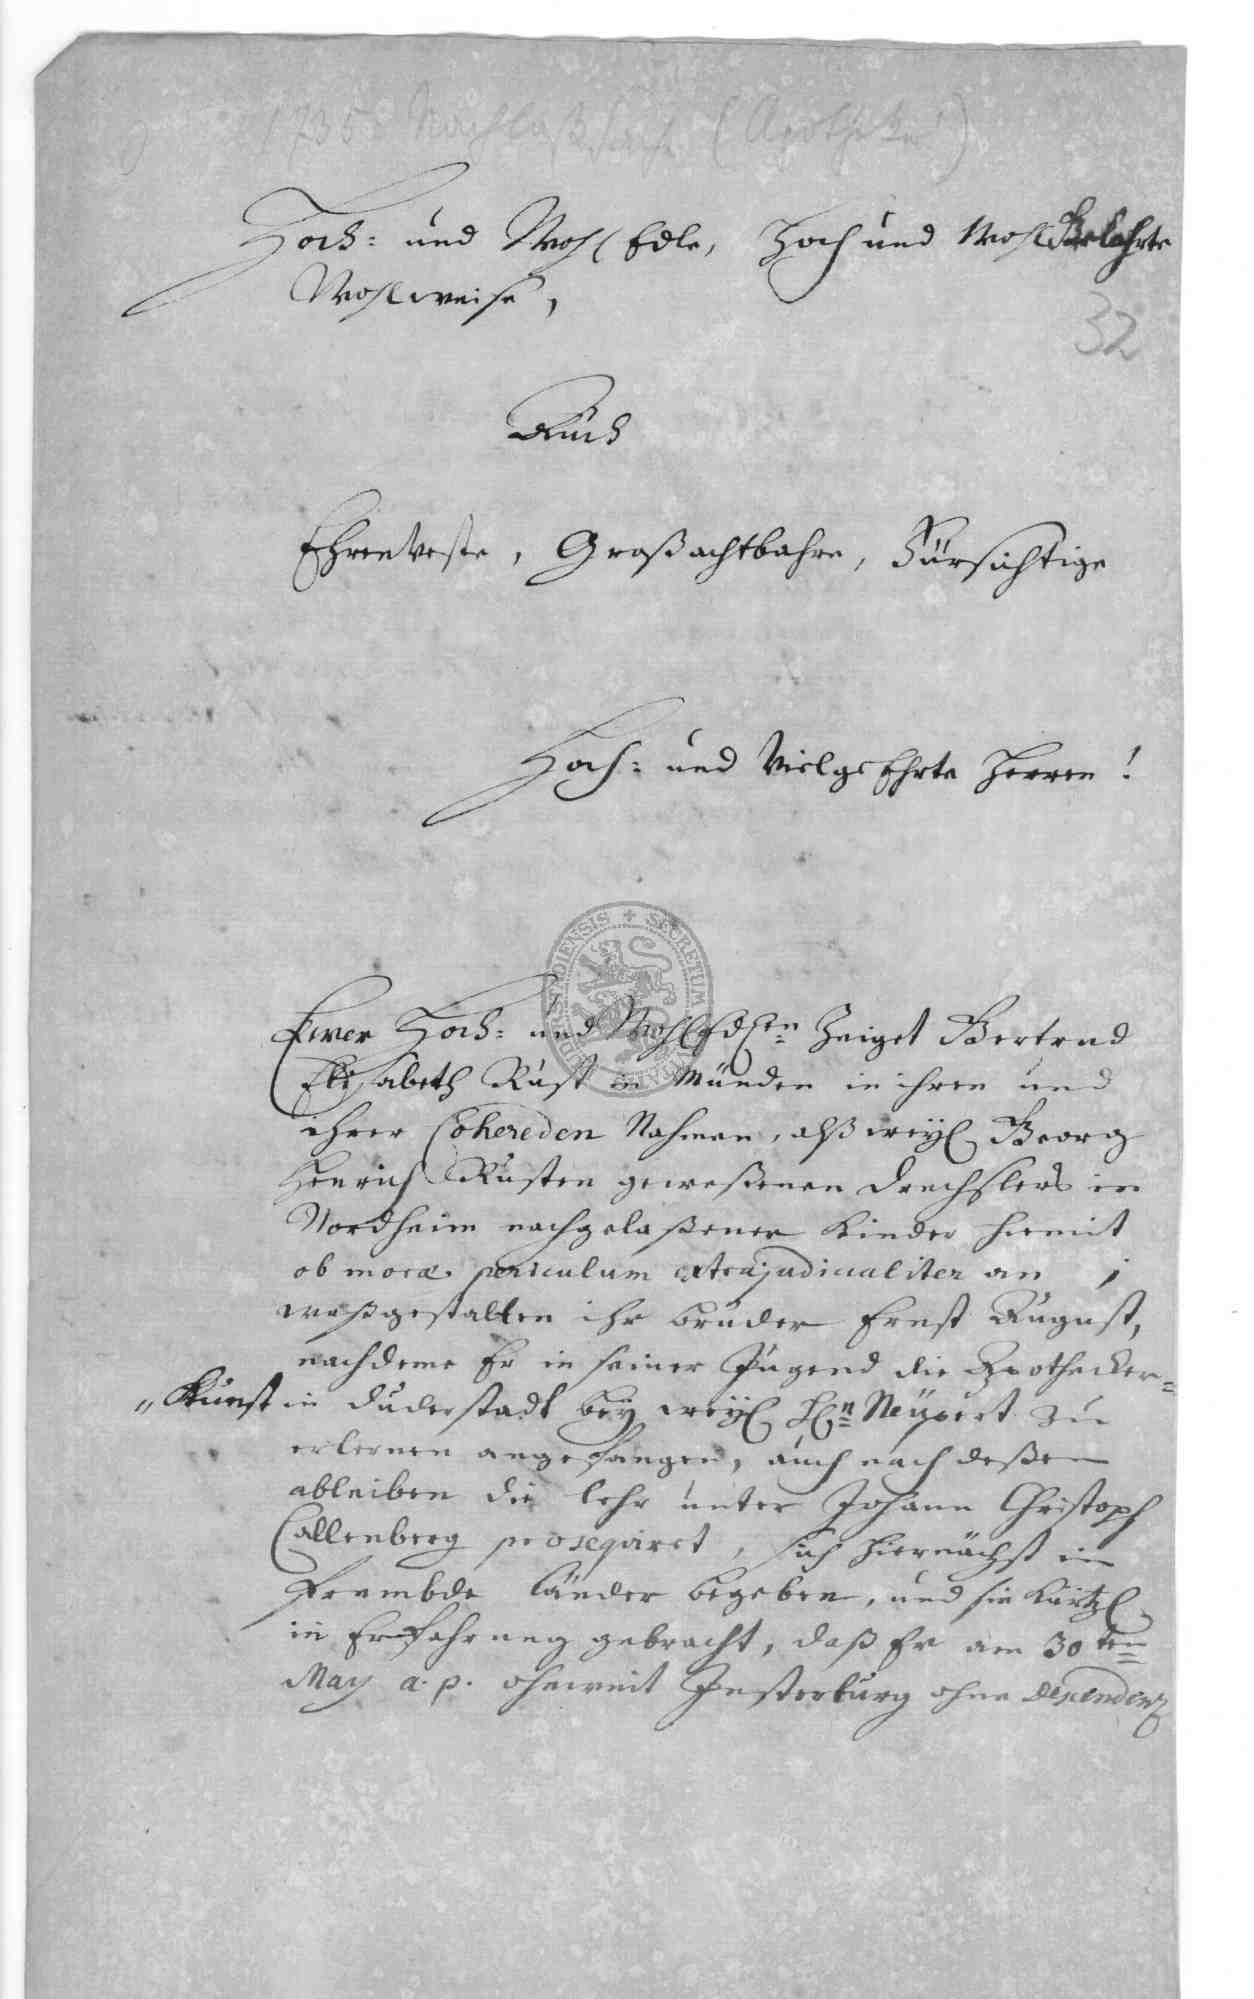 1735. Nachlaß Sache (Apotheke)
Hoch- und WohlEdle, Hoch und WohlGelahrte
Wohlweise,
32
Auch
EhrenVeste, Großachtbahre, Fürsichtige
Hoch- und VielgeEhrte Herren!
SECRETUM
Ewer Hoch- und WohlEdlen Zeiget Gertrud
Elisabeth Rust in Münden in ihren und
ihrer Cohereden Nahmen, alß weyl. Georg
Henrich Rusten geweßenen Drechslers in
Nordheim nachgelaßener Kinder hiemit
ob moræ periculum extrajudicialiter an;
waßgestalten ihr bruder Ernst August,
nachdeme Er in seiner Jugend die Apothecker-
„Kunst in Duderstadt bey weyl. H. Neüpert zu
erlernen angefangen, auch nach deßen
ableiben die lehr unter Johann Christoph
Callenberg prosequiret, sich hiernächst in
frembde länder begeben, und sie kürtzl.
in Erfahrung gebracht, daß Er am 30ten
May a. p. ohnweit Insterburg ohne descendenz